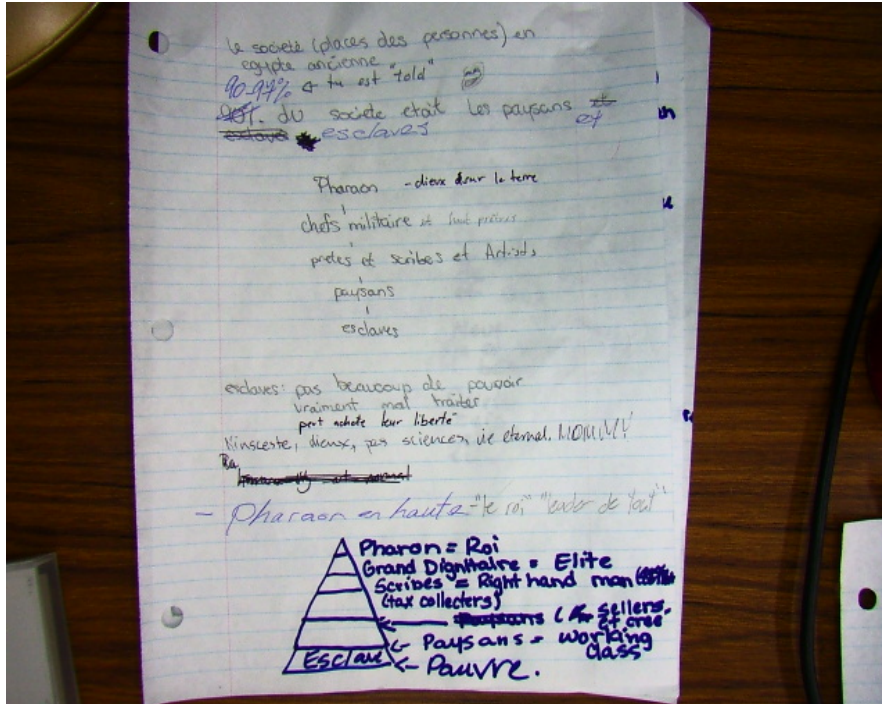 le societé (places des personnes) en
egypte ancienne
90-97% tu est "told"
du societe etait les paysans et
esclaves
Pharaon - dieux sur la terre
chefs militaire et haut prêtres
pretes et scribes et Artists
paysans
esclaves
esclaves: pas beaucoup de pouvoir
vraiment mal traiter
peut achete leur liberté
l'insceste, dieux, pas sciences, vie eternal. MOMMY!
Ra,
- Pharaon en haute - "le roi" "leader de tout"
Pharon = Roi
Grand Dignitaire = Elite
Scribes = Right hand man
(tax collecters)
sellers,
et cree
Paysans = working
class
Esclave
Pauvre.